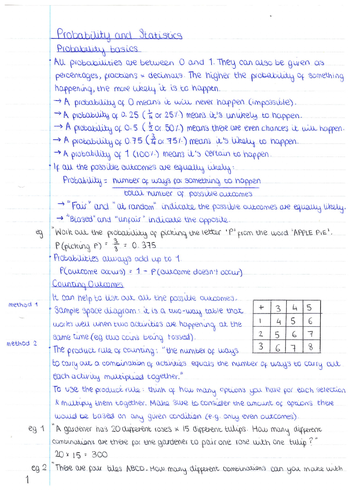 Probability and Statistics
Probability basics
• All probabilities are between 0 and 1. They can also be given as
percentages, fractions + decimals. The higher the probability of something
happening, the more likely it is to happen.
→ A probability of 0 means it will never happen (impossible).
→ A probability of 0.25 (¼ or 25%) means it's unlikely to happen.
→ A probability of 0.5 (½ or 50%) means there are even chances it will happen.
→ A probability of 0.75 (¾ or 75%) means it's likely to happen.
→ A probability of 1 (100%) means it's certain to happen.
• If all the possible outcomes are equally likely:
Probability = number of ways for something to happen
total number of possible outcomes
→ "Fair" and "at random" indicate the possible outcomes are equally likely.
→ "Biased" and "unfair" indicate the opposite.
eg "Work out the probability of picking the letter 'P' from the word 'APPLE PIE'.
P(picking P) = 3/8 = 0.375
• Probabilities always add up to 1.
P(outcome occurs) = 1 - P(outcome doesn't occur)
Counting Outcomes
It can help to list out all the possible outcomes.
method 1 • Sample space diagram: it is a two-way table that
works well when two activities are happening at the
same time (eg two coins being tossed).
+ 3 4 5
1 4 5 6
2 5 6 7
3 6 7 8
method 2 • The product rule of counting: "the number of ways
to carry out a combination of activities equals the number of ways to carry out
each activity multiplied together."
To use the product rule: think of how many options you have for each selection
& multiply them together. Make sure to consider the amount of options there
would be based on any given condition (e.g. any even outcomes).
eg.1 "A gardener has 20 different roses & 15 different tulips. How many different
combinations are there for the gardener to pair one rose with one tulip?"
20 × 15 = 300
eg.2 "There are four tiles ABCD. How many different combinations can you make with
1